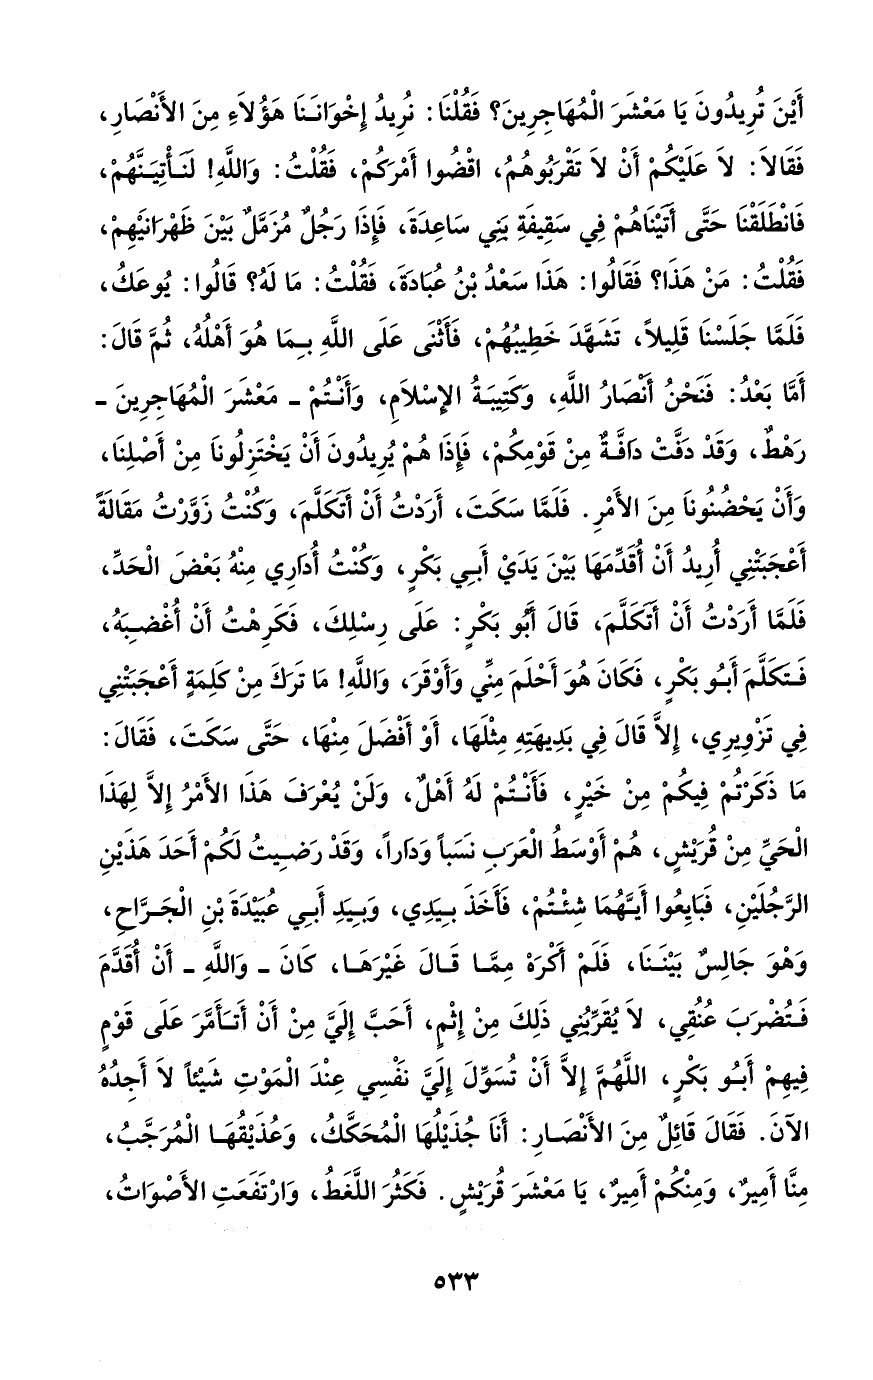 أَيْنَ تُرِيدُونَ يَا مَعْشَرَ الْمُهَاجِرِينَ؟ فَقُلْنَا: نُرِيدُ إِخْوَانَنَا هَؤُلاَءِ مِنَ الأَنْصَارِ،
فَقَالاَ: لاَ عَلَيْكُمْ أَنْ لاَ تَقْرَبُوهُمُ، اقْضُوا أَمْرَكُمْ، فَقُلْتُ: وَاللَّهِ! لَنَأْتِيَنَّهُمْ،
فَانْطَلَقْنَا حَتَّى أَتَيْنَاهُمْ فِي سَقِيفَةِ بَنِي سَاعِدَةَ، فَإِذَا رَجُلٌ مُزَمَّلٌ بَيْنَ ظَهْرَانَيْهِمْ،
فَقُلْتُ: مَنْ هَذَا؟ فَقَالُوا: هَذَا سَعْدُ بْنُ عُبَادَةَ، فَقُلْتُ: مَا لَهُ؟ قَالُوا: يُوعَكُ،
فَلَمَّا جَلَسْنَا قَلِيلاً، تَشَهَّدَ خَطِيبُهُمْ، فَأَثْنَى عَلَى اللَّهِ بِمَا هُوَ أَهْلُهُ، ثُمَّ قَالَ:
أَمَّا بَعْدُ: فَنَحْنُ أَنْصَارُ اللَّهِ، وَكَتِيبَةُ الإِسْلاَمِ، وَأَنْتُمْ - مَعْشَرَ الْمُهَاجِرِينَ -
رَهْطٌ، وَقَدْ دَفَّتْ دَافَّةٌ مِنْ قَوْمِكُمْ، فَإِذَا هُمْ يُرِيدُونَ أَنْ يَخْتَزِلُونَا مِنْ أَصْلِنَا،
وَأَنْ يَحْضُنُونَا مِنَ الأَمْرِ. فَلَمَّا سَكَتَ، أَرَدْتُ أَنْ أَتَكَلَّمَ، وَكُنْتُ زَوَّرْتُ مَقَالَةً
أَعْجَبَتْنِي أُرِيدُ أَنْ أُقَدِّمَهَا بَيْنَ يَدَيْ أَبِي بَكْرٍ، وَكُنْتُ أُدَارِي مِنْهُ بَعْضَ الْحَدِّ،
فَلَمَّا أَرَدْتُ أَنْ أَتَكَلَّمَ، قَالَ أَبُو بَكْرٍ: عَلَى رِسْلِكَ، فَكَرِهْتُ أَنْ أُغْضِبَهُ،
فَتَكَلَّمَ أَبُو بَكْرٍ، فَكَانَ هُوَ أَحْلَمَ مِنِّي وَأَوْقَرَ، وَاللَّهِ! مَا تَرَكَ مِنْ كَلِمَةٍ أَعْجَبَتْنِي
فِي تَزْوِيرِي، إِلاَّ قَالَ فِي بَدِيهَتِهِ مِثْلَهَا، أَوْ أَفْضَلَ مِنْهَا، حَتَّى سَكَتَ، فَقَالَ:
مَا ذَكَرْتُمْ فِيكُمْ مِنْ خَيْرٍ، فَأَنْتُمْ لَهُ أَهْلٌ، وَلَنْ يُعْرَفَ هَذَا الأَمْرُ إِلاَّ لِهَذَا
الْحَيِّ مِنْ قُرَيْشٍ، هُمْ أَوْسَطُ الْعَرَبِ نَسَباً وَدَاراً، وَقَدْ رَضِيتُ لَكُمْ أَحَدَ هَذَيْنِ
الرَّجُلَيْنِ، فَبَايِعُوا أَيَّهُمَا شِئْتُمْ، فَأَخَذَ بِيَدِي، وَبِيَدِ أَبِي عُبَيْدَةَ بْنِ الْجَرَّاحِ،
وَهْوَ جَالِسٌ بَيْنَنَا، فَلَمْ أَكْرَهْ مِمَّا قَالَ غَيْرَهَا، كَانَ - وَاللَّهِ - أَنْ أُقَدَّمَ
فَتُضْرَبَ عُنُقِي، لاَ يُقَرِّبُنِي ذَلِكَ مِنْ إِثْمٍ، أَحَبَّ إِلَيَّ مِنْ أَنْ أَتَأَمَّرَ عَلَى قَوْمٍ
فِيهِمْ أَبُو بَكْرٍ، اللَّهُمَّ إِلاَّ أَنْ تُسَوِّلَ إِلَيَّ نَفْسِي عِنْدَ الْمَوْتِ شَيْئاً لاَ أَجِدُهُ
الآنَ. فَقَالَ قَائِلٌ مِنَ الأَنْصَارِ: أَنَا جُذَيْلُهَا الْمُحَكَّكُ، وَعُذَيْقُهَا الْمُرَجَّبُ،
مِنَّا أَمِيرٌ، وَمِنْكُمْ أَمِيرٌ، يَا مَعْشَرَ قُرَيْشٍ. فَكَثُرَ اللَّغَطُ، وَارْتَفَعَتِ الأَصْوَاتُ،
٥٣٣